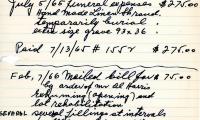 July 5/65 funeral expenses $275.00
Hand made Linen thread.
temporarily burial.
extra size grave 93x36.
Paid 7/13/65 # 1552 $275.00
Feb. 7/66 Mailed bill for $75.00
by order of mr Al Harris
(opening) and
lot rehabilitation
several fillings at intervals